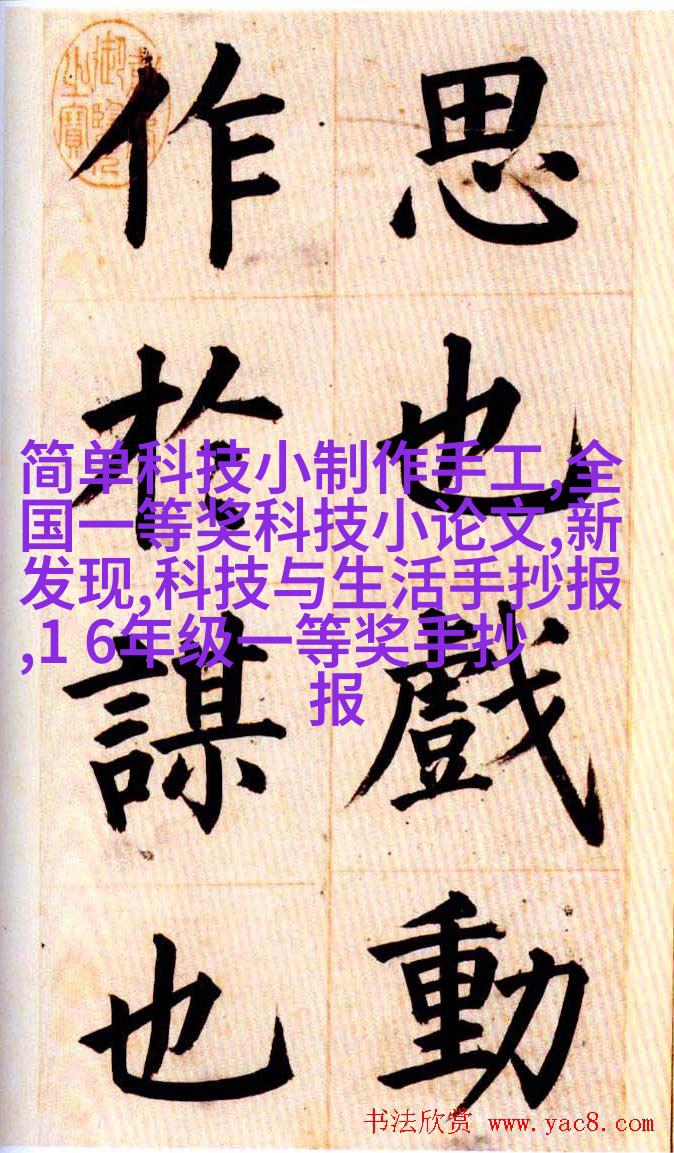 思也戲動
作於謀也
简单科技小制作手工,全
国一等奖科技小论文,新
发现,科技与生活手抄报
,1 6年级一等奖手抄
报
书法欣赏 www.yac8.com